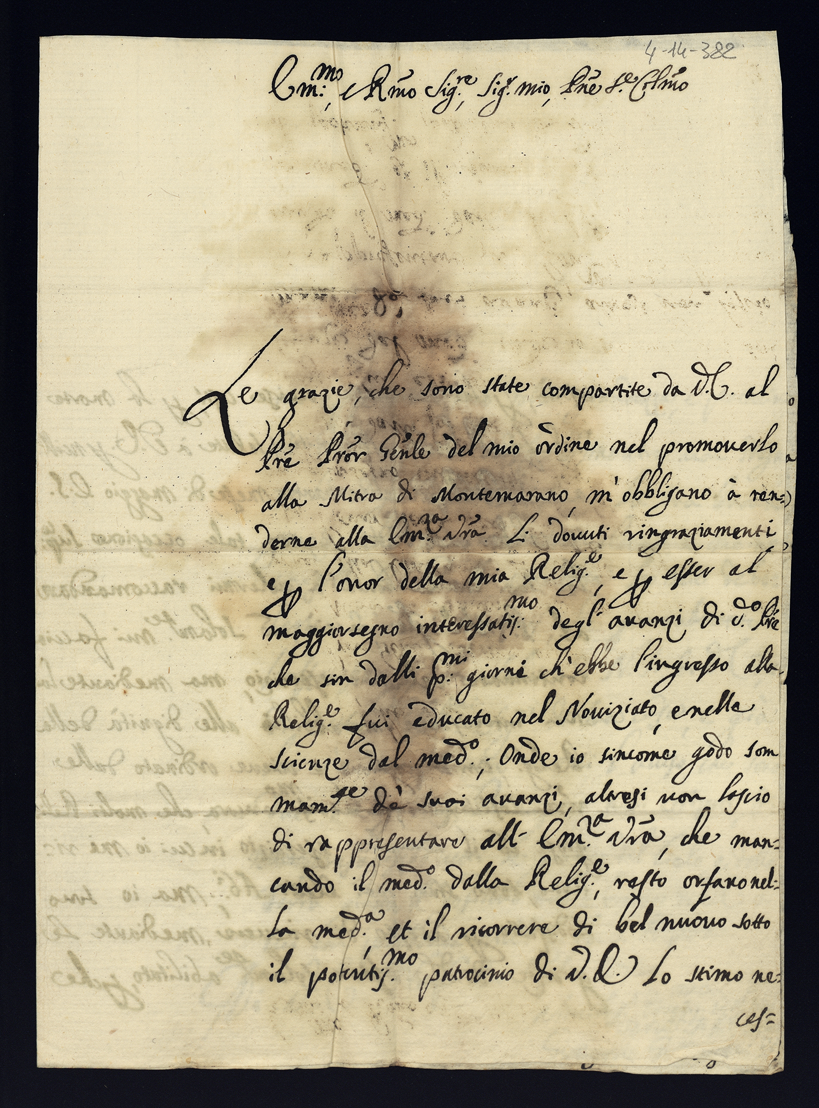 4-14-382
Em:mo, e Rmo Sig:re, Sig:r mio, Pñe Colmo
Le grazie, che sono state compartite da V.E. al
Pre Pror Genle del mio ordine nel promoverlo
alla Mitra di Montemarano, m'obbligano à ren=
derne alla Em:za Vrã li dovuti ringraziamenti,
e p l'onor della mia Relig:e, e p esser al
maggiorsegno interessatis:mo degl'avanzi di do Pre
che sin dalli p:mi giorni ch'ebbe l'ingresso alla
Relig:e fui educato nel Noviziato, e nelle
scienze dal medo:; Onde io sincome godo som
mam:te dè suoi avanzi, altresi non lascio
di rappresentare all' Em:za Vrã, che man=
cando il medo: dalla Relig:e, resto orfano nel=
la meda:, et il ricorrere di bel nuovo sotto
il potentis:mo patrocinio di V.E. lo stimo ne=
ces=